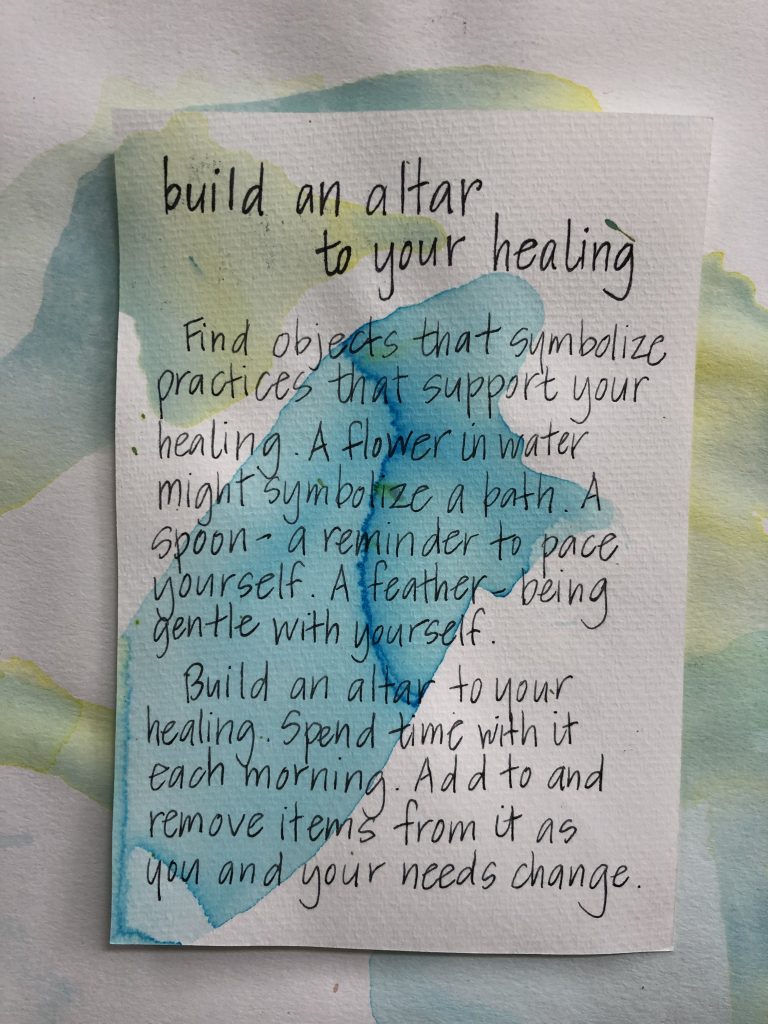 build an altar
to your healing
Find objects that symbolize
practices that support your
healing. A flower in water
might symbolize a bath. A
spoon - a reminder to pace
yourself. A feather - being
gentle with yourself.
Build an altar to your
healing. Spend time with it
each morning. Add to and
remove items from it as
you and your needs change.